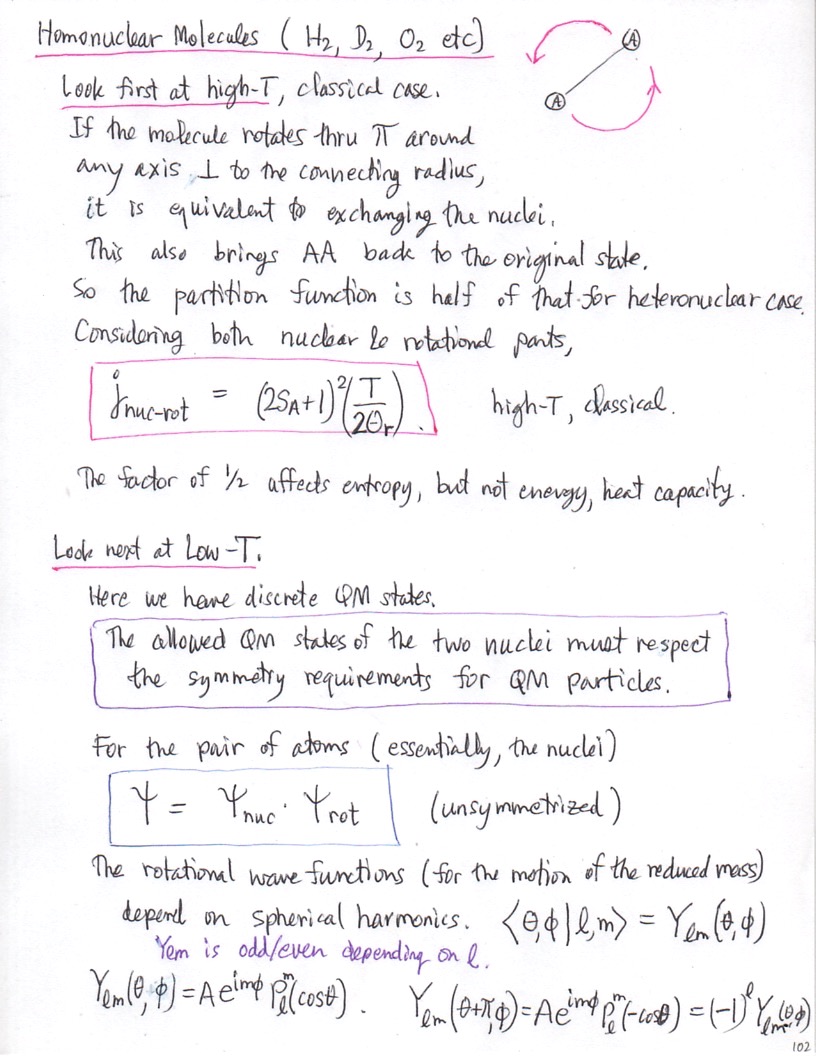 Homonuclear Molecules ( H₂, D₂, O₂ etc)
A
A
Look first at high-T, classical case.
If the molecule rotates thru π around
any axis ⊥ to the connecting radius,
it is equivalent to exchanging the nuclei.
This also brings AA back to the original state.
So the partition function is half of that for heteronuclear case.
Considering both nuclear & rotational parts,
j°nuc-rot = (2S_A+1)²(T/2Θ_r). high-T, classical.
The factor of 1/2 affects entropy, but not energy, heat capacity.
Look next at Low-T.
Here we have discrete QM states.
The allowed QM states of the two nuclei must respect
the symmetry requirements for QM particles.
For the pair of atoms (essentially, the nuclei)
Ψ = Ψnuc · Ψrot (unsymmetrized)
The rotational wave functions (for the motion of the reduced mass)
depend on spherical harmonics. ⟨θ,ϕ|l,m⟩ = Y_lm(θ,ϕ)
Y_lm is odd/even depending on l.
Y_lm(θ,ϕ) = A e^{imϕ} P_l^m(cosθ). Y_lm(θ+π,ϕ) = A e^{imϕ} P_l^m(-cosθ) = (-1)^l Y_lm(θϕ)
102